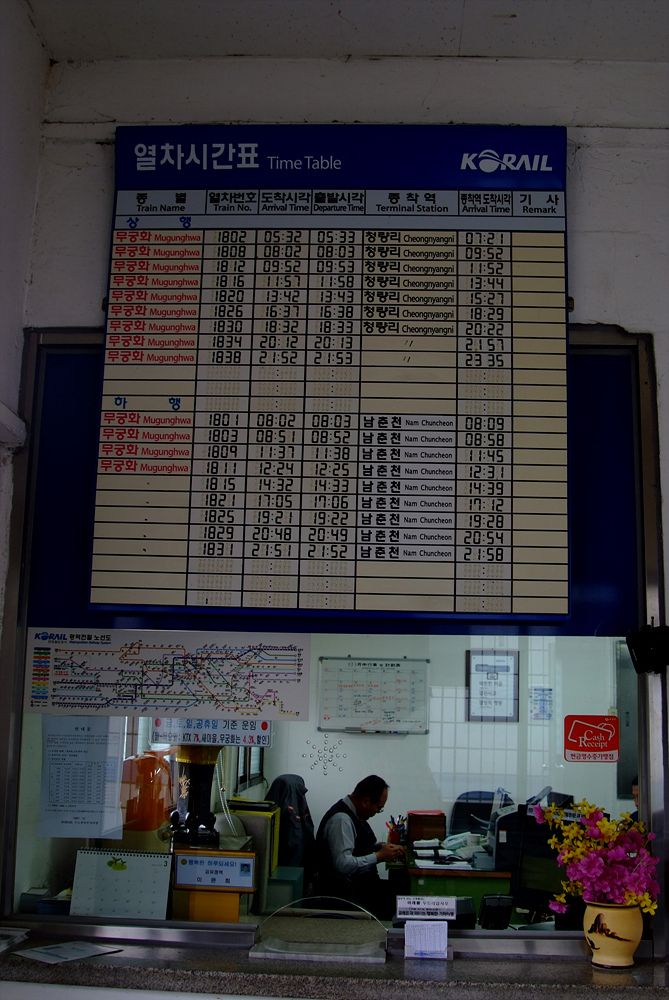 열차시간표 Time Table KORAIL
종 별 열차번호 도착시각 출발시각 종 착 역 종착역 도착시각 기 사
Train Name Train No. Arrival Time Departure Time Terminal Station Arrival Time Remark
상 행
무궁화 Mugunghwa 1802 05:32 05:33 청량리 Cheongnyangni 07:21
무궁화 Mugunghwa 1808 08:02 08:03 청량리 Cheongnyangni 09:52
무궁화 Mugunghwa 1812 09:52 09:53 청량리 Cheongnyangni 11:52
무궁화 Mugunghwa 1816 11:57 11:58 청량리 Cheongnyangni 13:44
무궁화 Mugunghwa 1820 13:42 13:43 청량리 Cheongnyangni 15:27
무궁화 Mugunghwa 1826 16:37 16:38 청량리 Cheongnyangni 18:29
무궁화 Mugunghwa 1830 18:32 18:33 청량리 Cheongnyangni 20:22
무궁화 Mugunghwa 1834 20:12 20:13 〃 21:57
무궁화 Mugunghwa 1838 21:52 21:53 〃 23:35
하 행
무궁화 Mugunghwa 1801 08:02 08:03 남춘천 Nam Chuncheon 08:09
무궁화 Mugunghwa 1803 08:51 08:52 남춘천 Nam Chuncheon 08:58
무궁화 Mugunghwa 1809 11:37 11:38 남춘천 Nam Chuncheon 11:45
무궁화 Mugunghwa 1811 12:24 12:25 남춘천 Nam Chuncheon 12:31
1815 14:32 14:33 남춘천 Nam Chuncheon 14:39
1821 17:05 17:06 남춘천 Nam Chuncheon 17:12
1825 19:21 19:22 남춘천 Nam Chuncheon 19:28
1829 20:48 20:49 남춘천 Nam Chuncheon 20:54
1831 21:51 21:52 남춘천 Nam Chuncheon 21:58
KORAIL 광역전철 노선도
금,토,일,공휴일 기준 운임
KTX 7%, 새마을,무궁화는 4.5%, 할인
안 내 문
Cash Receipt
현금영수증가맹점
3
행복한 하루되세요!